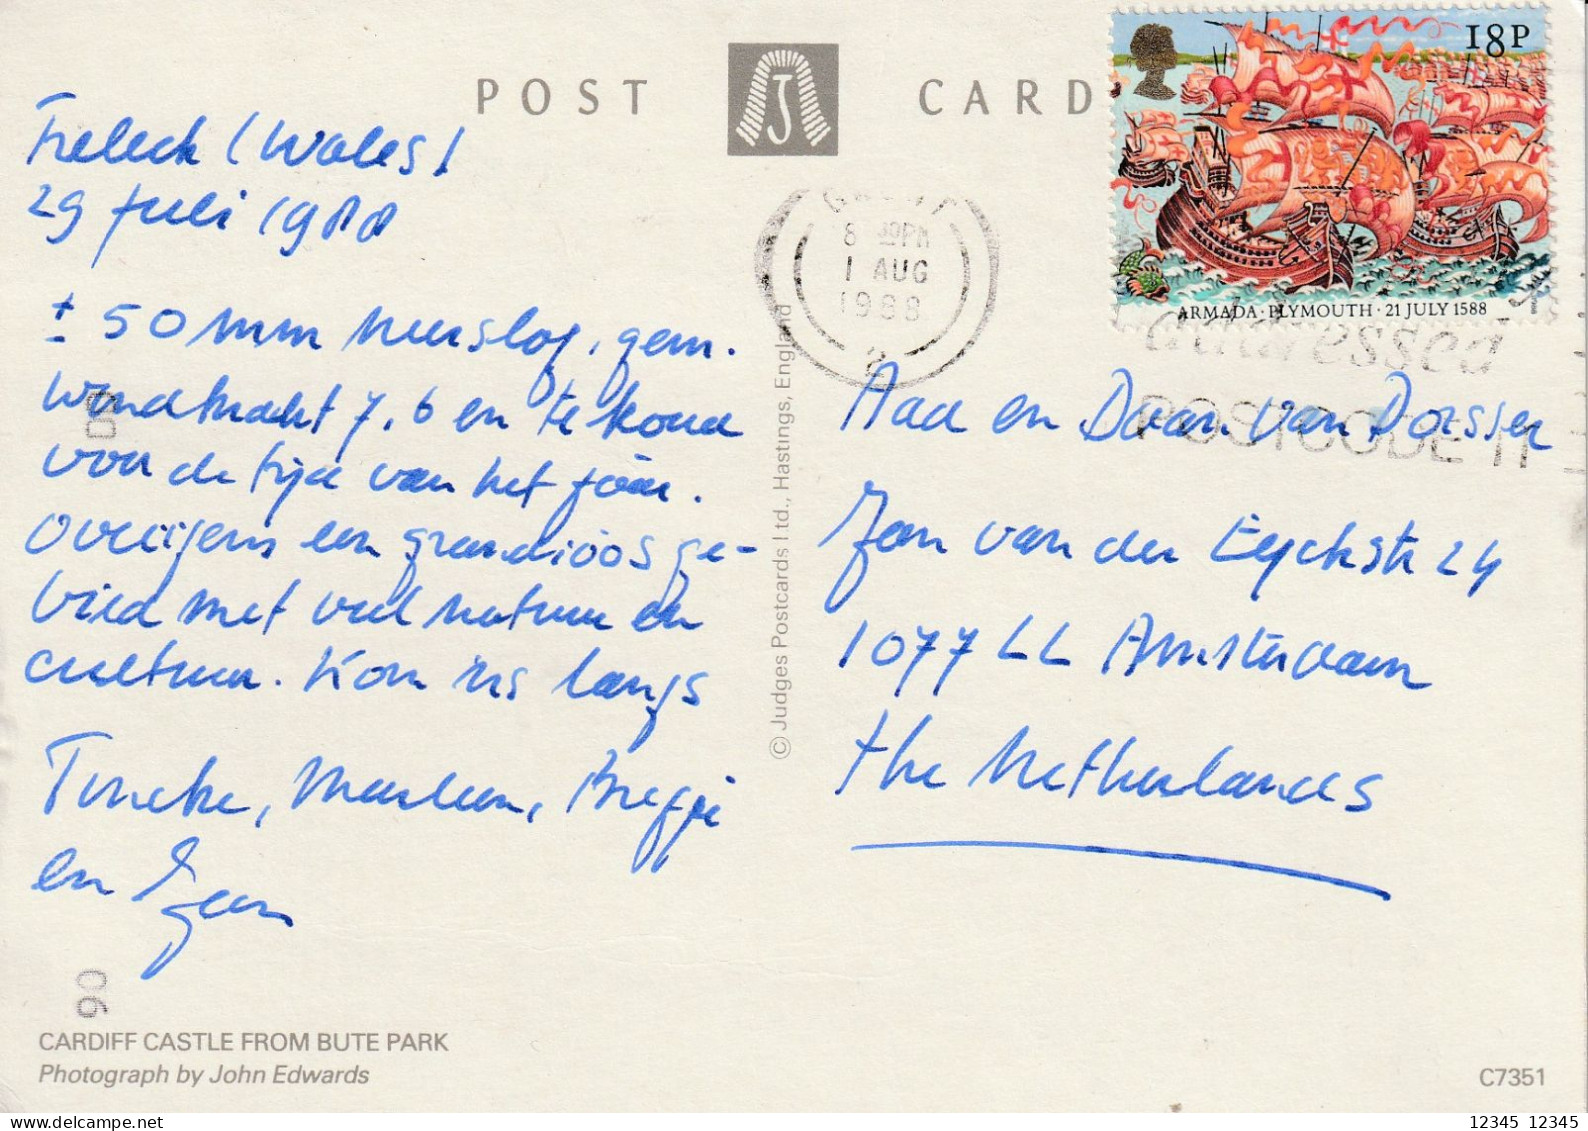 POST CARD
18P
ARMADA · PLYMOUTH · 21 JULY 1588
8 30PM
1 AUG
1988
2
addressed
POSTCODE IT
Treleck (Wales)
29 juli 1988
± 50 mm neerslag, gem.
windkracht 7, 6 en te koud
voor de tijd van het jaar.
Overigens een grandioos ge-
bied met veel natuur en
cultuur. Kom ns langs
Tineke, Marleen,
en
Aad en Daan van Dorsser
Jan van der Eyckstr 24
1077 LL Amsterdam
the Netherlands
© Judges Postcards Ltd., Hastings, England
90
CARDIFF CASTLE FROM BUTE PARK
Photograph by John Edwards
C7351
12345 12345